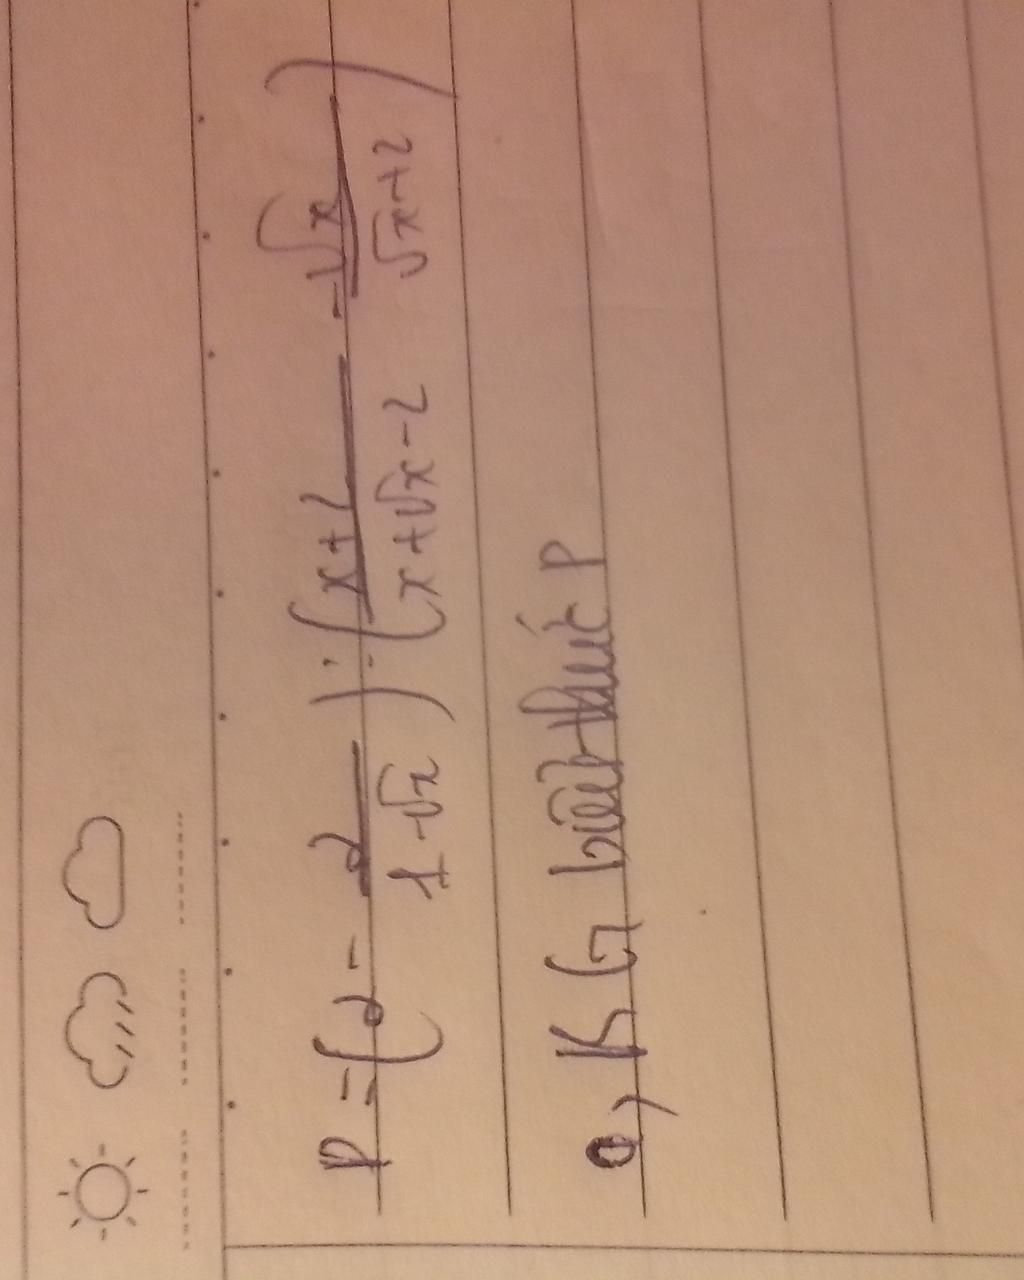 P = (2 - 2/(1-√x)) : ((x+2)/(x+√x-2) - √x/(√x+2))
a, R G biểu thức P